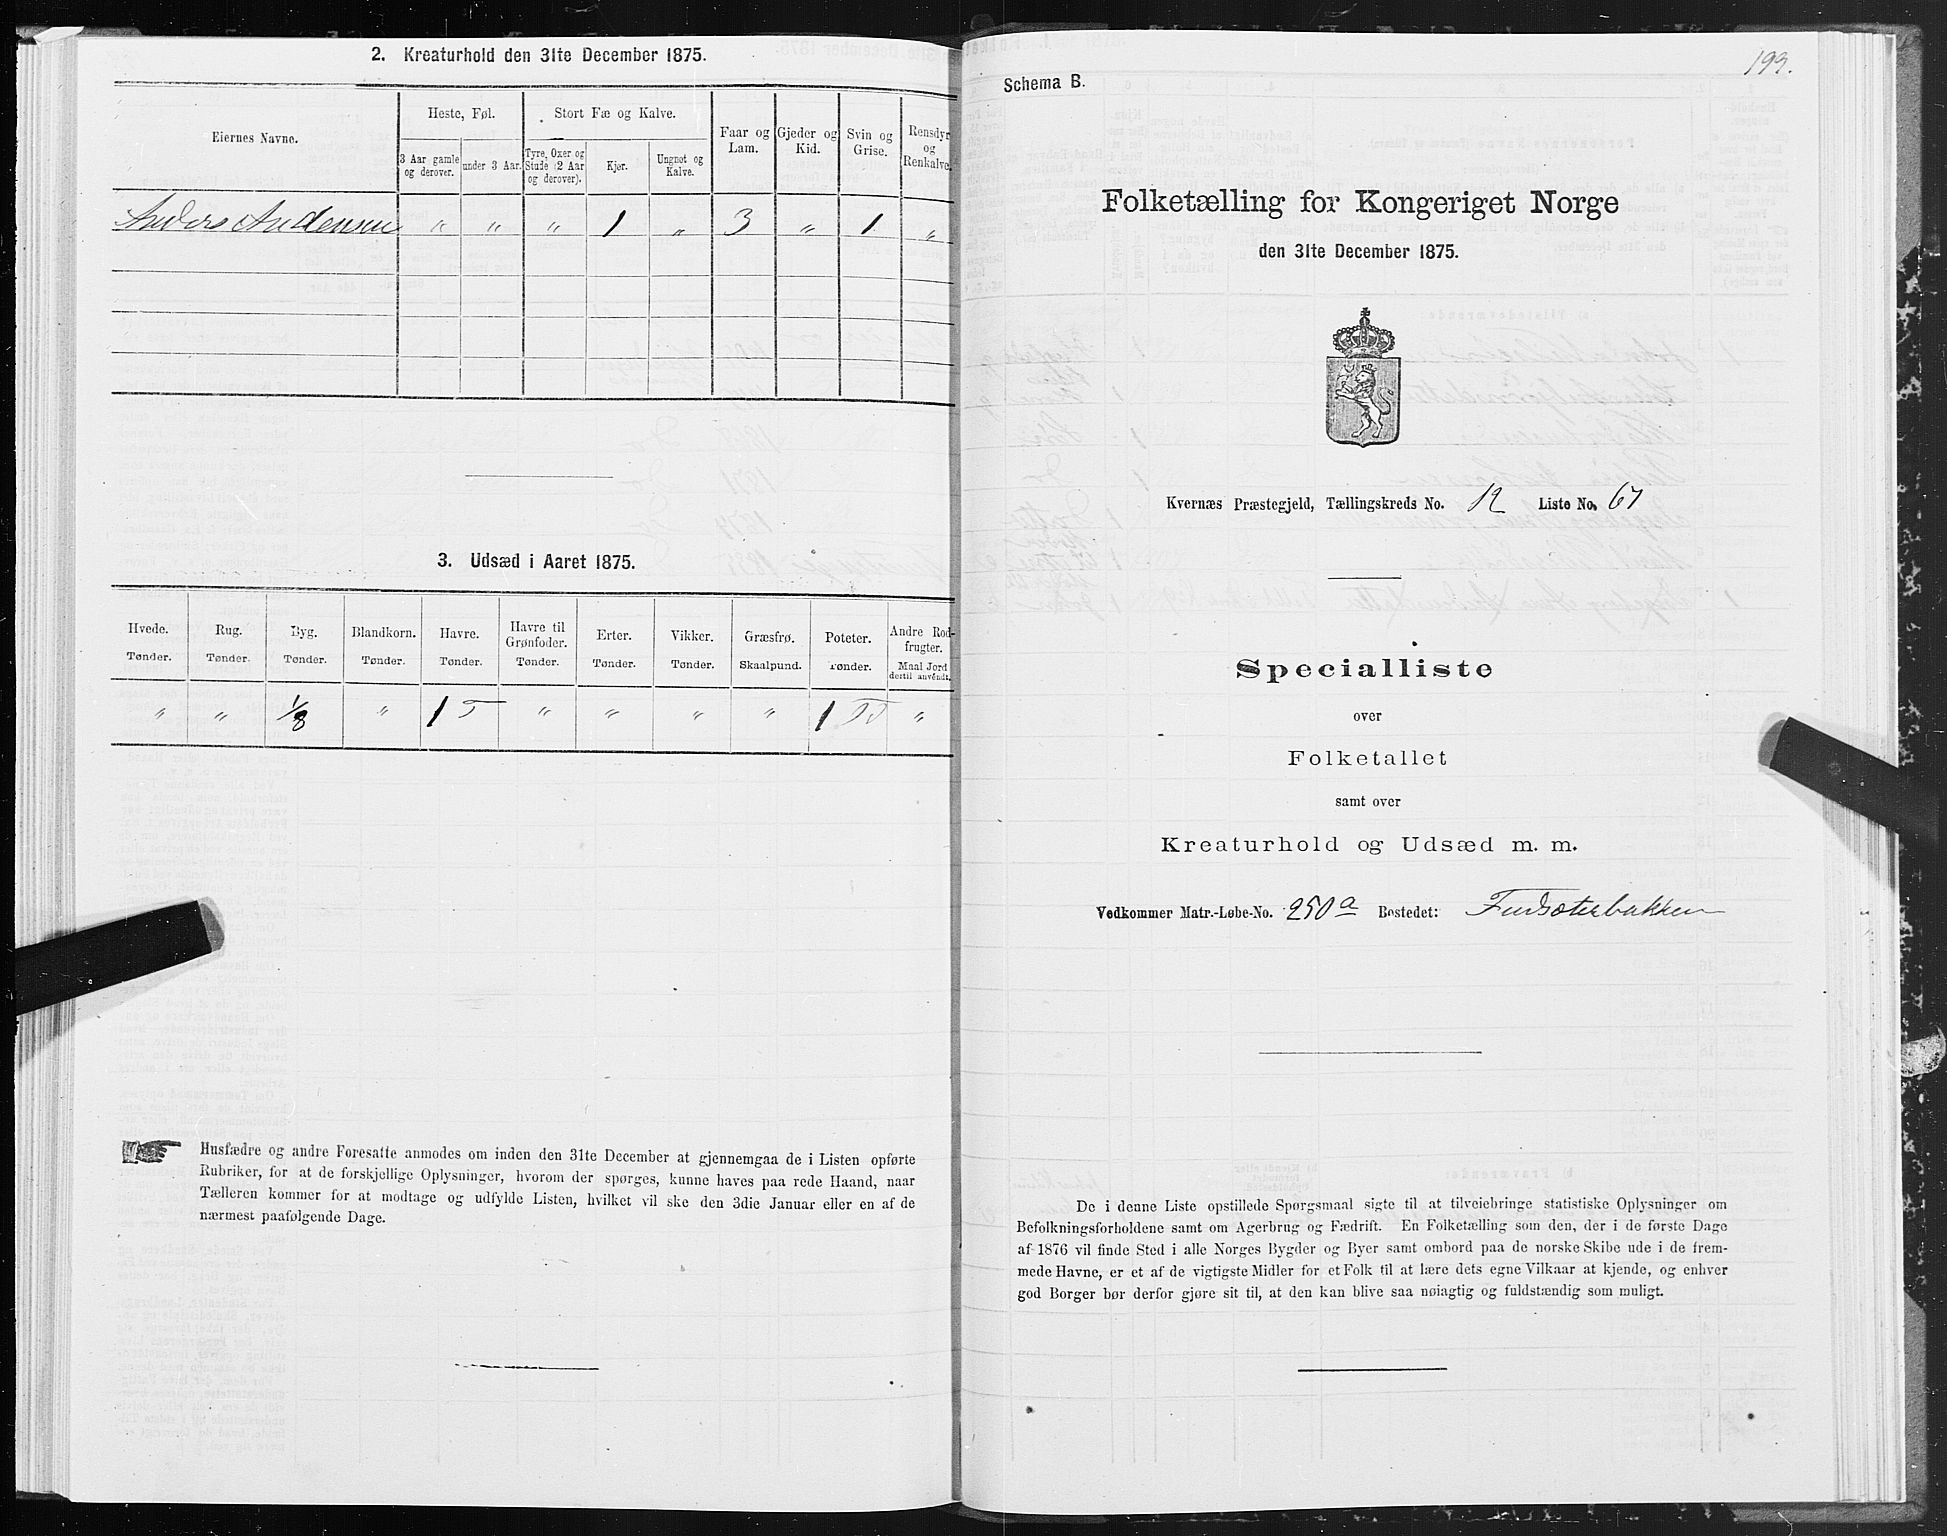 2. Kreaturhold den 31te December 1875.
Eiernes Navne.
Heste, Føl.
Stort Fæ og Kalve.
Faar og Lam.
Gjeder og Kid.
Svin og Grise.
Rensdyr og Renkalve.
3 Aar gamle og derover.
under 3 Aar.
Tyre, Oxer og Stude (2 Aar og derover).
Kjør.
Ungnøt og Kalve.
Anders Andersen " " " 1 " 3 " 1 "
3. Udsæd i Aaret 1875.
Hvede. Rug. Byg. Blandkorn. Havre. Havre til Grønfoder. Erter. Vikker. Græsfrø. Poteter. Andre Rodfrugter.
Tønder. Tønder. Tønder. Tønder. Tønder. Tønder. Tønder. Tønder. Skaalpund. Tønder. Maal Jord dertil anvendt.
" " 1/8 " 1 T " " " " 1 "
Husfædre og andre Foresatte anmodes om inden den 31te December at gjennemgaa de i Listen opførte
Rubriker, for at de forskjellige Oplysninger, hvorom der spørges, kunne haves paa rede Haand, naar
Tælleren kommer for at modtage og udfylde Listen, hvilket vil ske den 3die Januar eller en af de
nærmest paafølgende Dage.
199.
Schema B.
Folketælling for Kongeriget Norge
den 31te December 1875.
Kvernæs Præstegjeld, Tællingskreds No. 12 Liste No. 67
Specialliste
over
Folketallet
samt over
Kreaturhold og Udsæd m. m.
Vedkommer Matr.-Løbe-No. 250a Bostedet:
De i denne Liste opstillede Spørgsmaal sigte til at tilveiebringe statistiske Oplysninger om
Befolkningsforholdene samt om Agerbrug og Fædrift. En Folketælling som den, der i de første Dage
af 1876 vil finde Sted i alle Norges Bygder og Byer samt ombord paa de norske Skibe ude i de frem-
mede Havne, er et af de vigtigste Midler for et Folk til at lære dets egne Vilkaar at kjende, og enhver
god Borger bør derfor gjøre sit til, at den kan blive saa nøiagtig og fuldstændig som muligt.